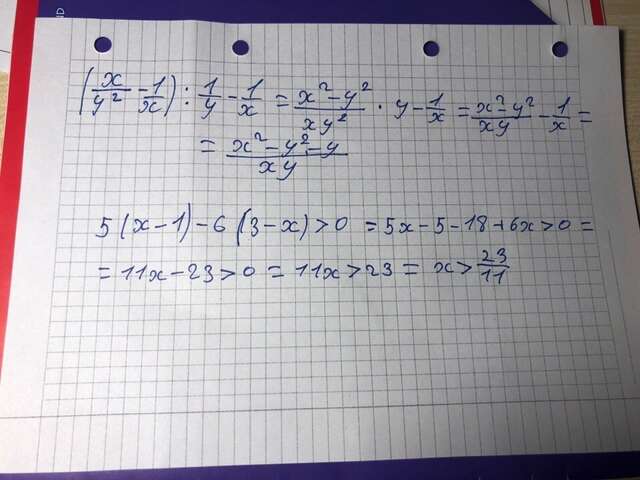 ND
(x/y² - 1/x) : 1/y - 1/x = (x² - y²)/(xy²) · y - 1/x = (x² - y²)/(xy) - 1/x =
= (x² - y² - y)/(xy)
5(x-1)-6(3-x)>0 = 5x-5-18+6x>0 =
= 11x-23>0 = 11x>23 = x>23/11